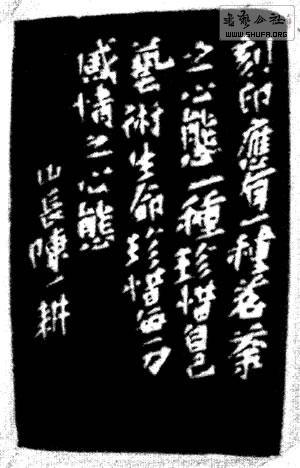 刻印應有一種若茶
之心態一種珍惜自己
藝術生命珍惜每一方
感情之心態
山長陳一耕
書藝公社
WWW.SHUFA.ORG